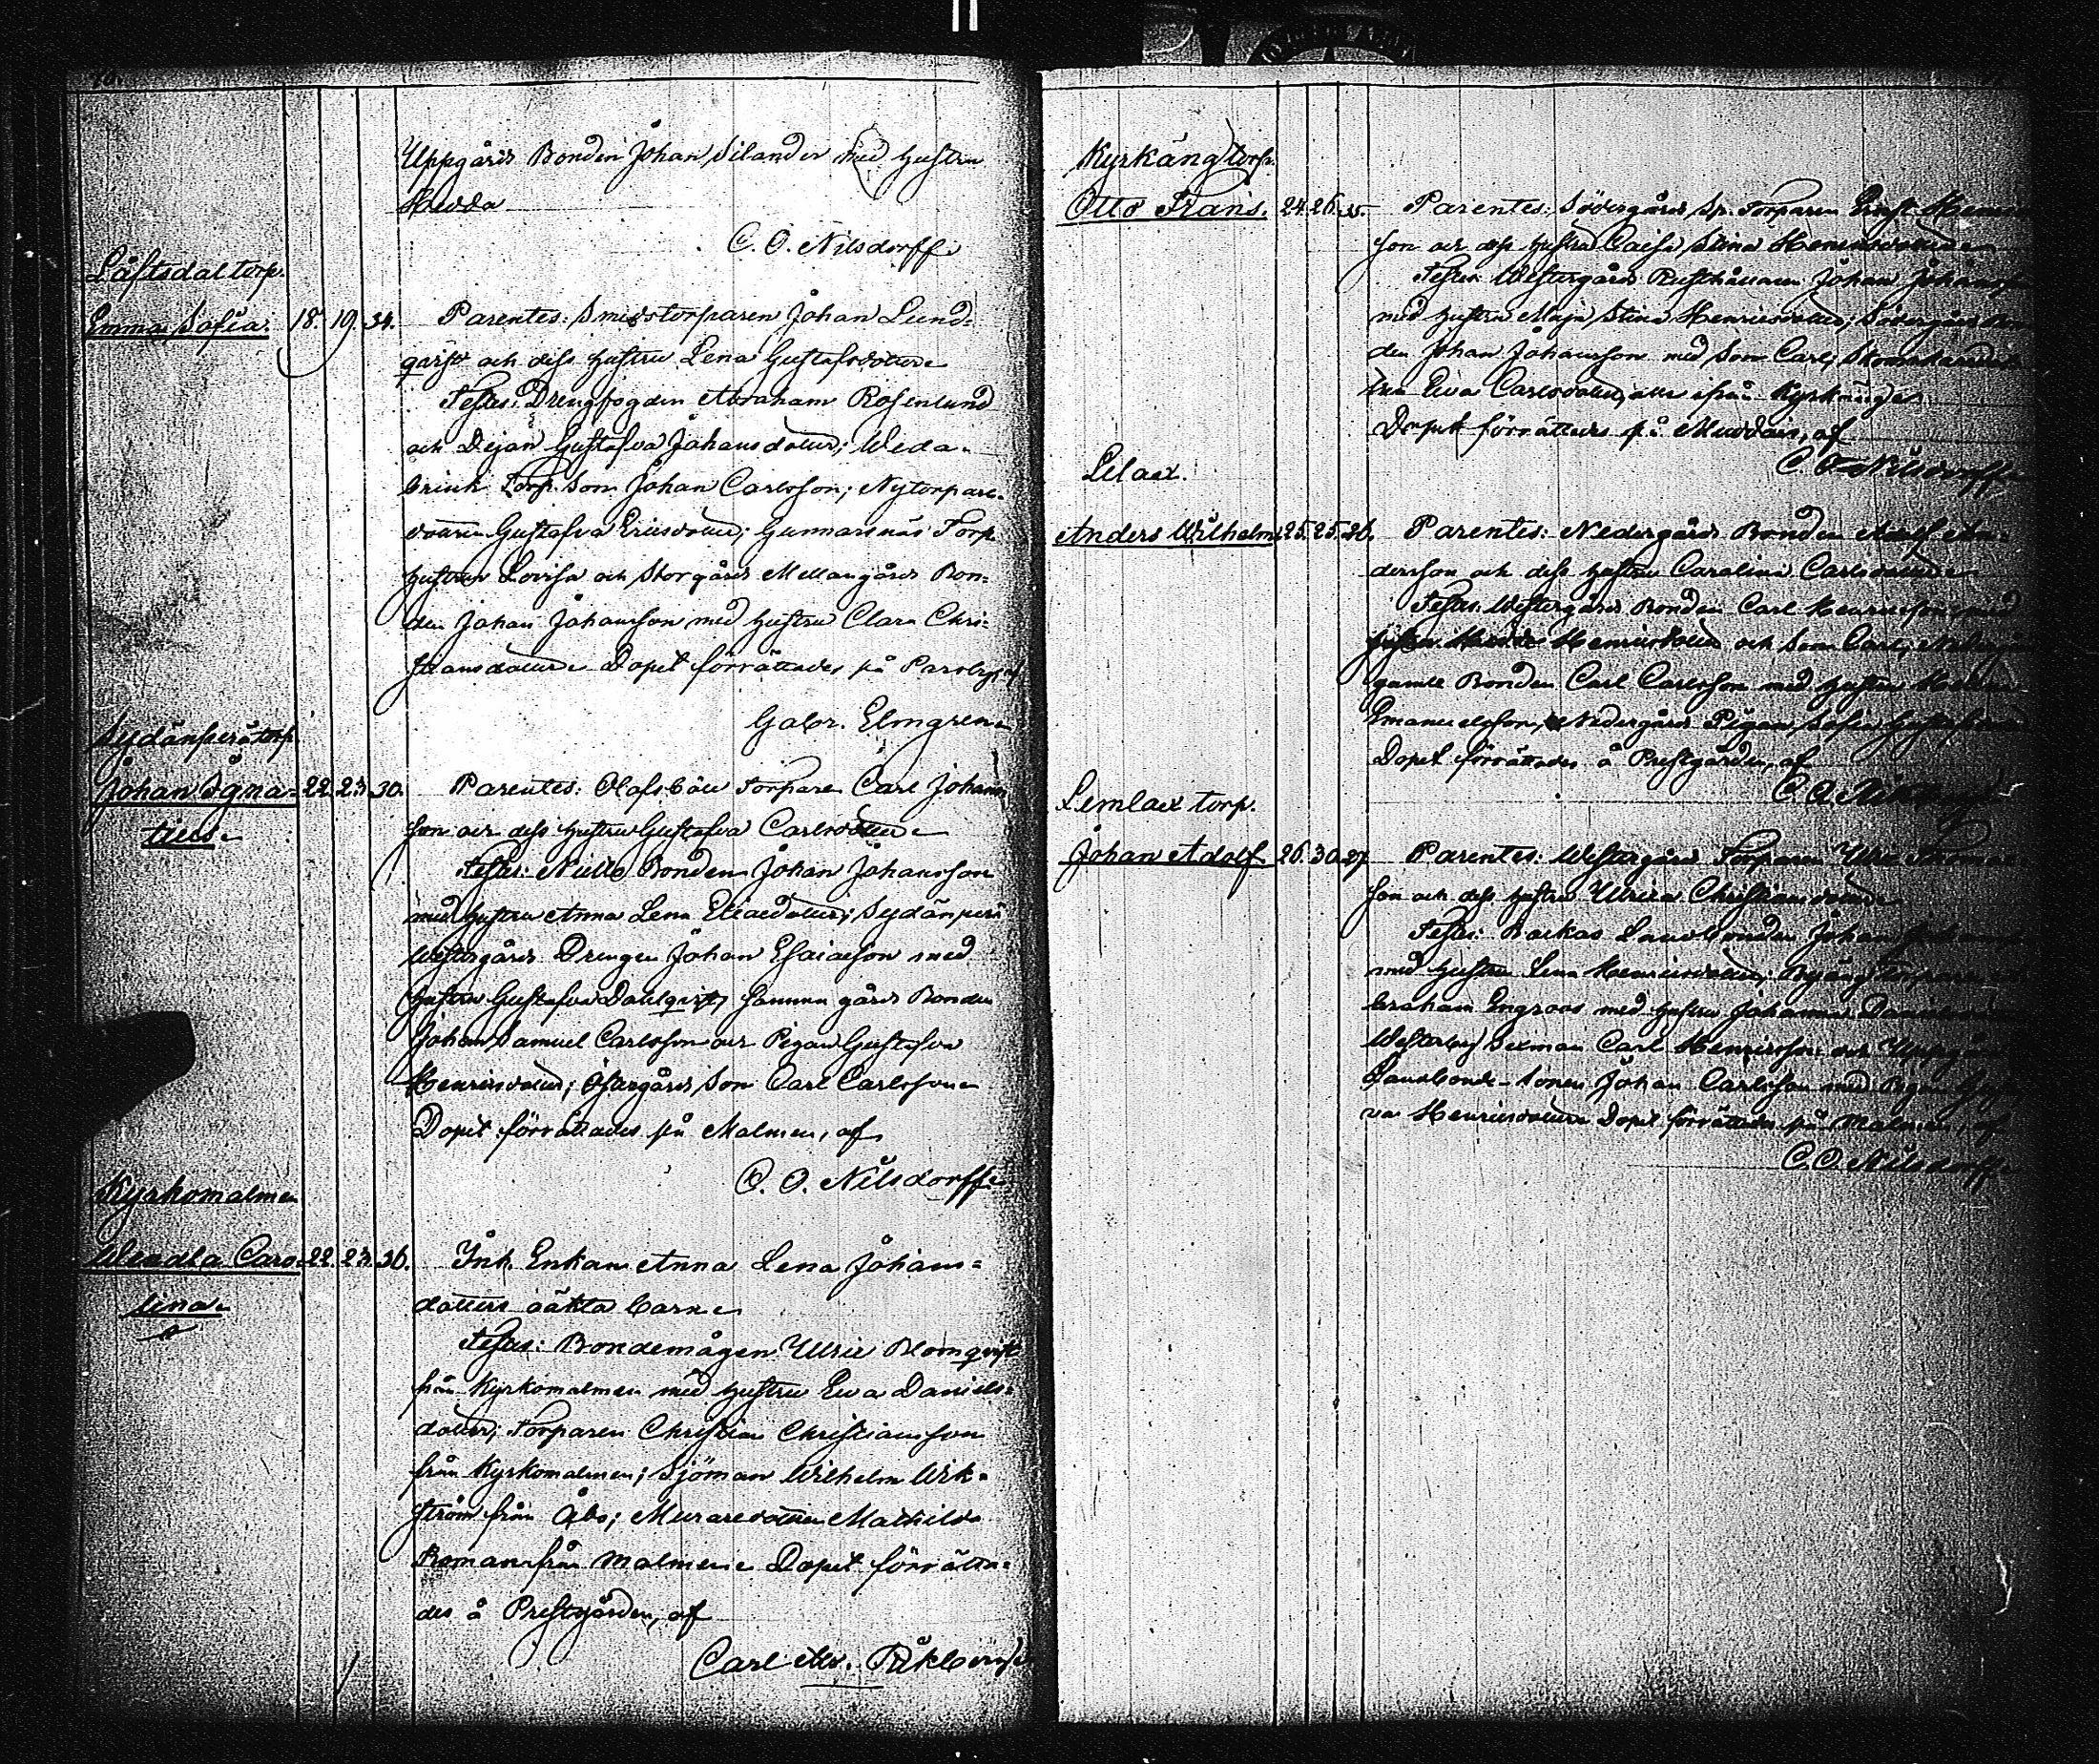 Uppgårds Bonden Johan Silander med hustru
Hedda
C. O. Nilsdorff.
Låftsdal torp.
Emma Sofia. 18. 19. 34. Parentes: Smidstorparen Johan Lund-
qvist och dess hustru Lena Gustafsdotter
Testes: Drengfogden Abraham Rosenlund
och Dejan Gustafva Johansdotter; Weda-
brink Torp. Son Johan Carlsson; Nytorpare-
dottren Gustafva Ericsdotter; Gunnarsnäs Torp.
hustrun Lovisa och Storgårds Mellangårds Bon-
den Johan Johansson med hustru Clara Chri-
stiansdotter Dopet förrättades på Parsby, af
Gabr. Elmgren
Sydänperä torp.
Johan Igna- 22. 23. 30. Parentes: Olofsböle Torpare Carl Johans
son och dess hustru Gustafva Carlsdotter
tius
Testes: Bonden Johan Johansson
med hustru Anna Lena Eliaedotter; Sydänperä
Westergårds Drengen Johan Esaiaeson med
hustru Gustafva Dahlqvist, samma gårds Bonden
Johan Samuel Carlsson och Pigan Gustafva
Henricsdotter; Östergårds Son Carl Carlsson
Dopet förrättades på Malmen, af
C. O. Nilsdorff
Kyrkomalmen
Wendla Caro- 22. 23. 36. Inh. Enkan Anna Lena Johans-
lina
dotters oäkta barn
Testes: Bondemågen Ulric Blomqvist
från Kyrkomalmen med hustru Eva Daniels-
dotter; Torparen Christian Christiansson
från Kyrkomalmen; Sjöman Wilhelm Wik-
ström från Åbo; Muraredottren Mathilda
Roman från Malmen Dopet förrätta-
des å Prestgården, af
Carl
Kyrkäng torp.
Otto Frans. 24. 26. 35. Parentes: Södergårds Sp. Torparen Ernst
son och dess hustru Caisa Stina Henricsdotter
Testes: Westergårds Rusthållaren Johan
med hustru Maja Stina Henricsdotter; Södergårds
den Johan Johansson med Son Carl,
Eva Carlsdotter, alle ifrån Kyrkänge
Dopet förrättades på Muddais, af
C. O. Nilsdorff
Lelax.
Anders Wilhelm 25. 25. 26. Parentes: Nedergårds Bonden Adolf An-
dersson och dess hustru Carolina Carlsdotter
Testes: Westergårds Bonden Carl Henricsson med
hustru Henricsdotter och Son Carl;
gamle Bonden Carl Carlsson med hustru
Nedergårds Pigan Sofia
Dopet förrättades å Prestgården, af
C. O.
Lemlax torp.
Johan Adolf 26. 30. 27. Parentes: Westergårds Torparen Ulric
son och dess hustru Ulrica Christiansdotter
Testes: Landbonden Johan
med hustru Lena Henricsdotter;
braham Engroos med hustru Johanna
Westerby Carl Henricsson och Uppgårds
Landbonde-sonen Johan Carlsson med Pigan
va Henricsdotter Dopet förrättades på Malmen, af
C. O. Nilsdorff